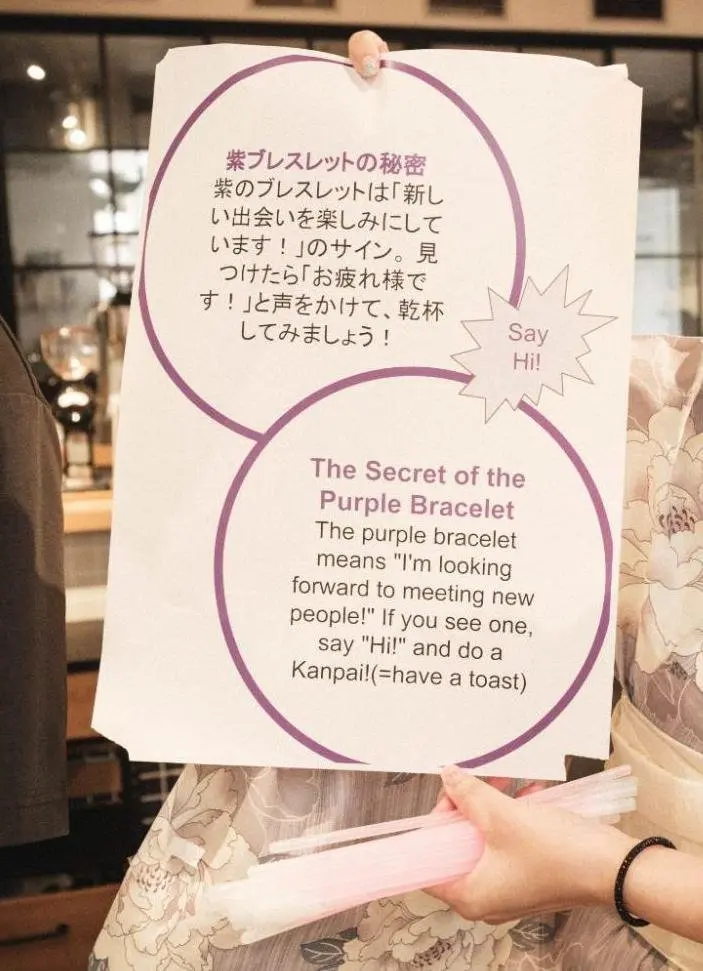 紫ブレスレットの秘密
紫のブレスレットは「新し
い出会いを楽しみにして
います！」のサイン。見
つけたら「お疲れ様で
す！」と声をかけて、乾杯
してみましょう！
Say
Hi!
The Secret of the
Purple Bracelet
The purple bracelet
means "I'm looking
forward to meeting new
people!" If you see one,
say "Hi!" and do a
Kanpai!(=have a toast)